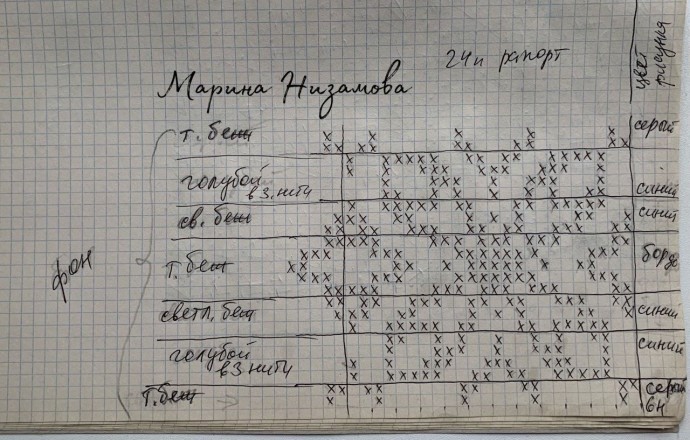 24 п рапорт
цвет рисунка
Марина Низамова
т. беж серый
голубой
в 3. нити синий
св. беж синий
фон
т. беж бордо
светл. беж синий
голубой
в 3 нити синий
т. беж серый
6н